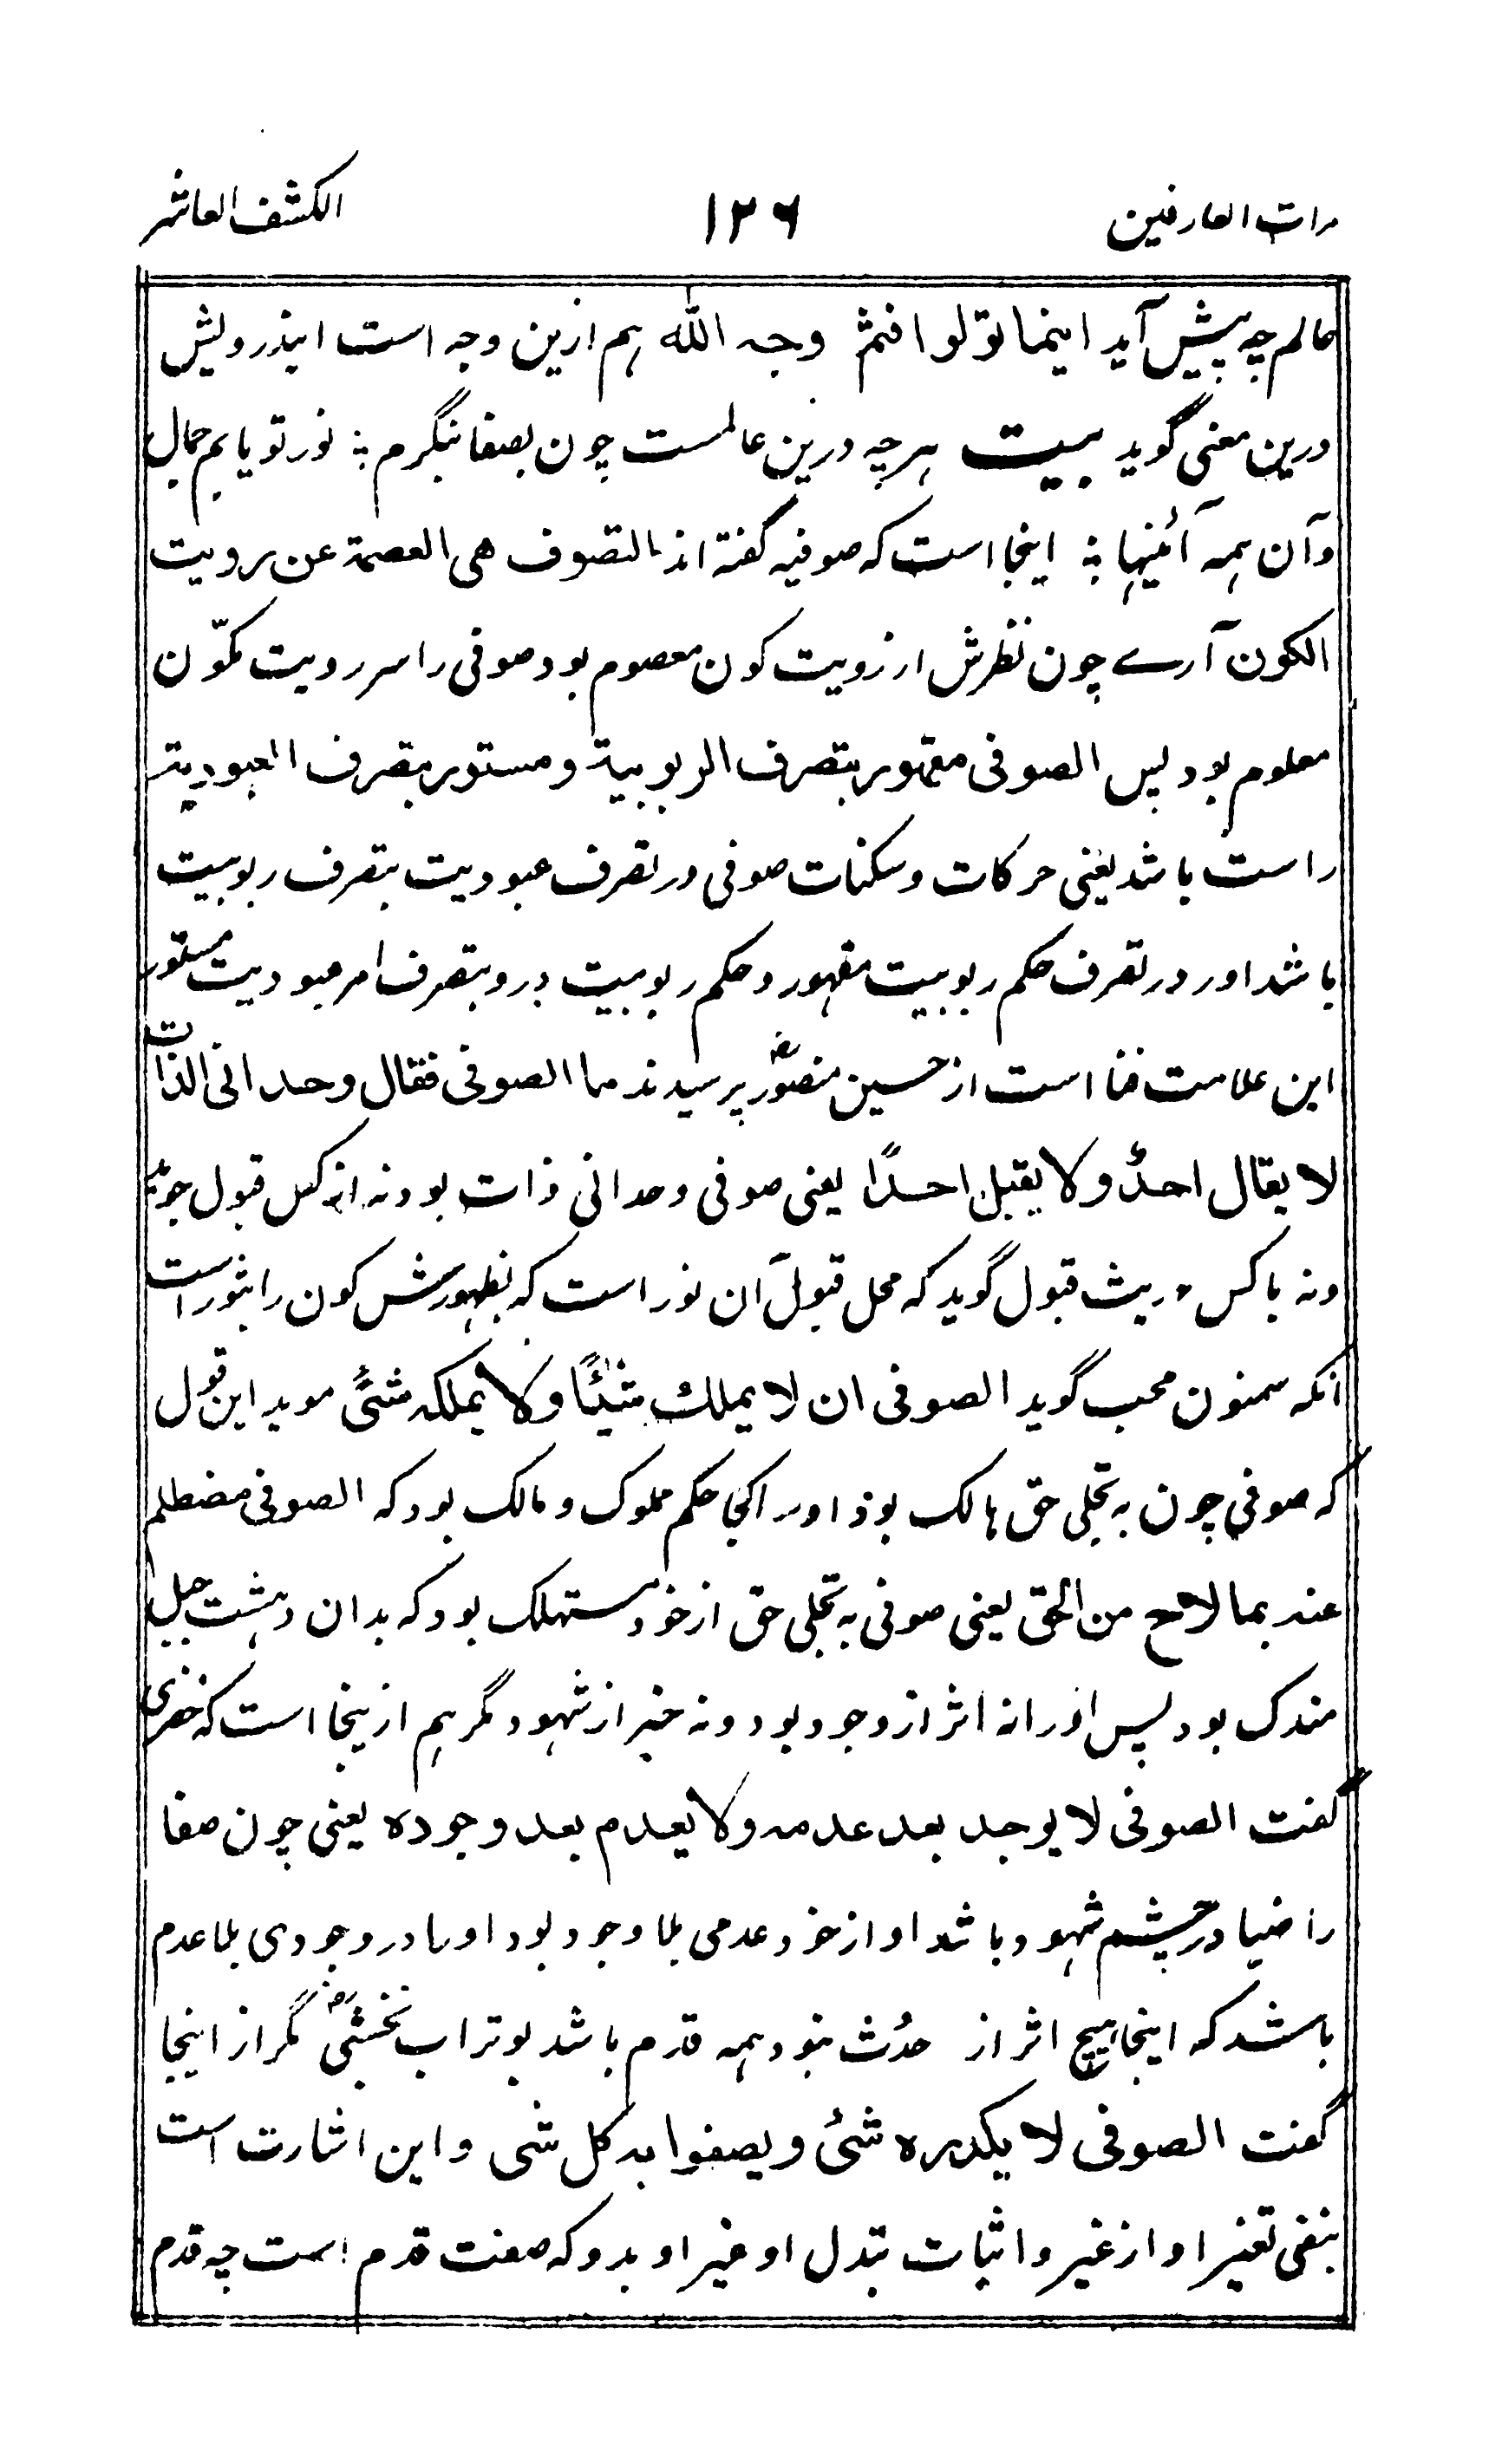 مرات العارفین ۱۲۶ الکشف العاشر
عالم چه پیش آید اینما تولوا فثم وجه الله هم ازین وجه است این درویش
درین معنی گوید بیت هرچه درین عالمست چون بصفا بنگرم ؞ نور تو یابم جمال
وآن همه آئینها ؞ اینجا است که صوفیه گفته اند التصوف هی العصمة عن رویت
الکون آرے چون نظرش از رویت کون معصوم بود صوفی را سر رویت مکوّن
معلوم بود پس الصوفی مقهور بتصرف الربوبیة و مستور بتصرف العبودیة
راست باشد یعنی حرکات و سکنات صوفی در تصرف عبودیت بتصرف ربوبیت
باشد اور در تصرف حکم ربوبیت مقهور و حکم ربوبیت درو بتصرف امر عبودیت مستور
این علامت فنا است از حسین منصورؒ پرسیدند ما الصوفی فقال وحدانی الذات
لا یقال احدٌ ولا یقبل احدًا یعنی صوفی وحدانی ذات بود نه از کس قبول جوید
ونه با کس قبول گوید که محل قبول آن نور است که بظهورش کون را ثبور است
آنکه سمنون محب گوید الصوفی ان لا یملک شیئًا ولا یملکه شئً موید این قول
که صوفی چون به تجلی حق هالک بود اورا کجا حکم مملوک و مالک بود که الصوفی مضطلم
عند بما لاح من الحق یعنی صوفی به تجلی حق از خود مستهلک بود که بدان دهشت جبل
مندک بود پس اورا نه اثر از وجود بود و نه خبر از شهود مگر هم ازینجا است که خضری
گفت الصوفی لا یوجد بعد عدمه ولا یعدم بعد وجوده یعنی چون صفا
را ضیا در چشم شهود باشد او از خود عدمی بلا وجود بود اورا در وجودی بلا عدم
باشد که اینجا هیچ اثر از حدُث نبود همه قدم باشد بوتراب نخشبیؒ مگر از اینجا
گفت الصوفی لا یکدره شئ و یصفوا به کل شی و این اشارت است
بنفی تغیر او از غیر و اثبات تبدل او غیر او بدو که صفت قدم است چه قدم